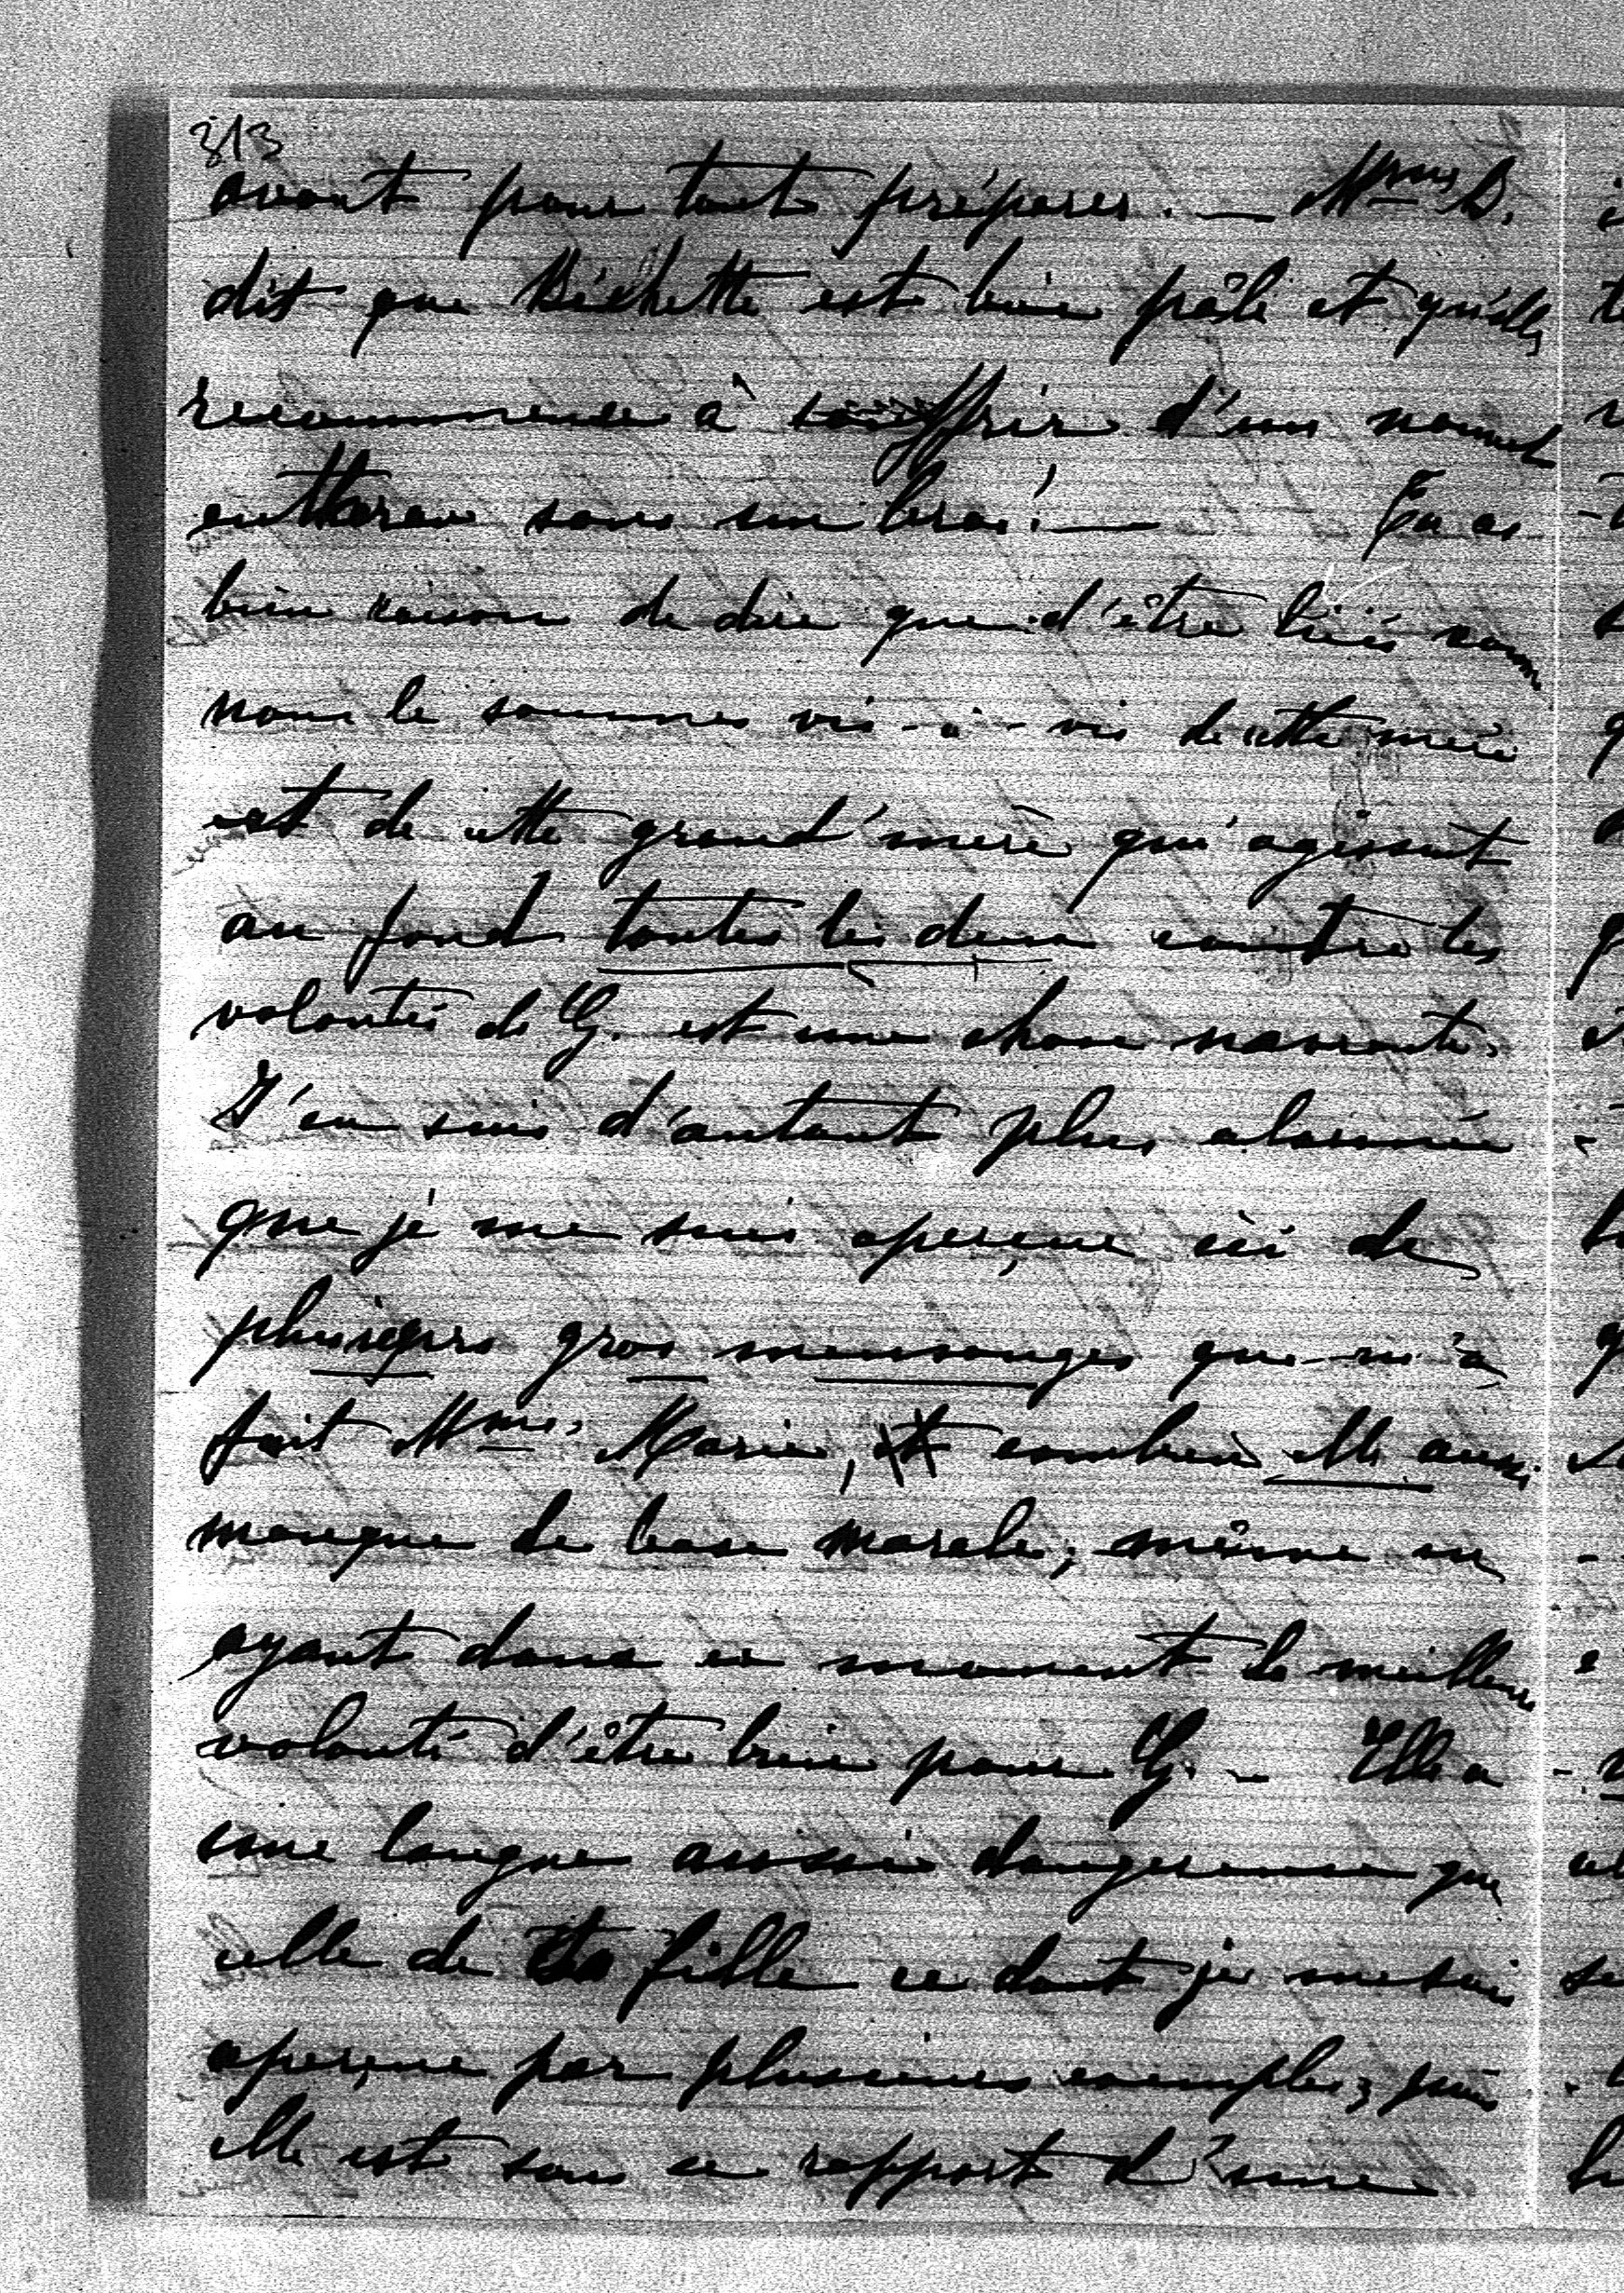 313
avant pour tout préparer. — Mme D.
dit que Béchette est bien pâle et qu'elle
recommence à souffrir d'un nouvel
anthrax sous un bras! — Tu as
bien raison de dire que d'être liés comme
nous le sommes vis-à-vis de cette mère
et de cette grand'mère qui agissent
au fond toutes les deux contre les
volontés de G. est une chose navrante.
J'en suis d'autant plus alarmée
que je me suis aperçue ici de
plusieurs gros mensonges que m'a
fait Mme Marie, et combien elle aussi
manque de base morale, même en
ayant dans ce moment la meilleure
volonté d'être bien pour G. — Elle a
une langue aussi dangereuse que
celle de sa fille ce dont je me suis
aperçue par plusieurs exemples, puis
elle est sous ce rapport d'une